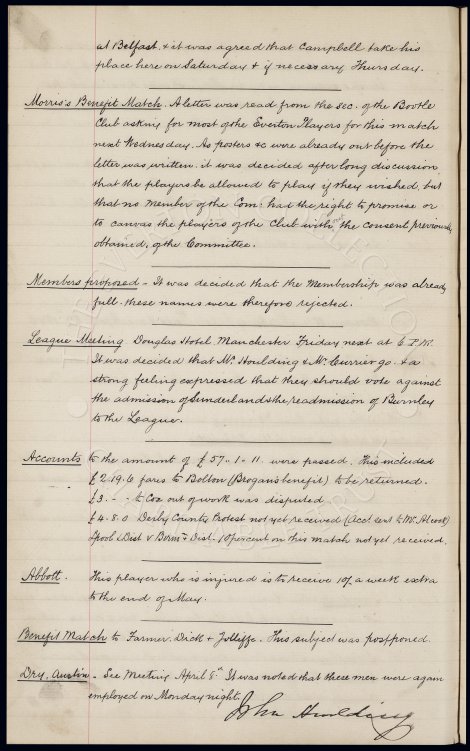 at Belfast. & it was agreed that Campbell take his
place here on Saturday & if necessary Thursday.
Morris's Benefit Match. A letter was read from the sec. of the Bootle
Club asking for most of the Everton Players for this match
next Wednesday. As posters &c were already out before the
letter was written. it was decided after long discussion
that the players be allowed to play if they wished, but
that no member of the Com: had the right to promise or
to canvas the players of the Club with the consent previously
obtained, of the Committee.
Members proposed - It was decided that the Membership was already
full. these names were therefore rejected.
League Meeting Douglas Hotel. Manchester Friday next at 6 P.M.
It was decided that Mr. Houlding & Mr. Currier go. & a
strong feeling expressed that they should vote against
the admission of Sunderland & the readmission of Burnley
to the League.
Accounts to the amount of £57..1-11. were passed. This included
£2.19.6 fares to Bolton (Brogan's benefit) to be returned.
£3. - . - to Cox out of work was disputed
£4.8.0 Derby County Protest not yet received (Acct sent to Mr. Alcock)
L'pool & Dist v Birm & Dist. 10 percent on this match not yet received.
Abbott. This player who is injured is to receive 10/ a week extra
to the end of May.
Benefit Match to Farmer, Dick & Jolliffe. This subject was postponed.
Dry, Austin - See Meeting April 8th. It was noted that these men were again
employed on Monday night.
John Houlding